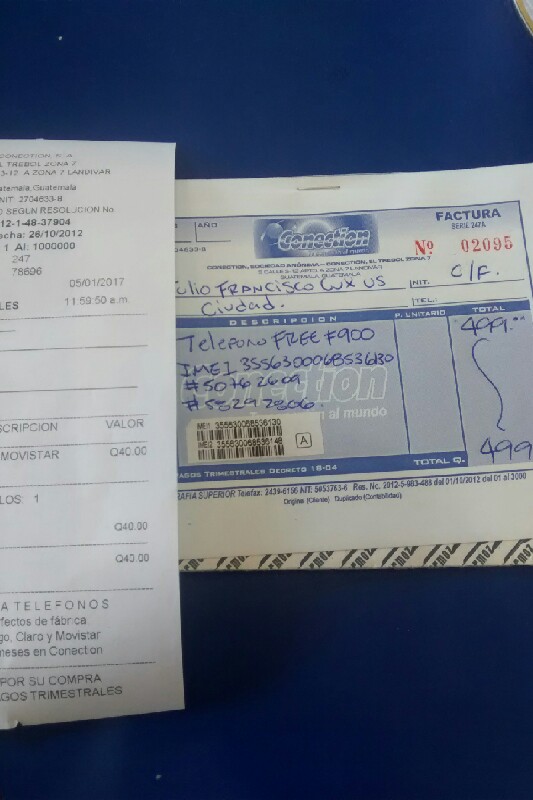 CONECTION, S. A.
EL TREBOL ZONA 7
3-12 A ZONA 7 LANDIVAR
Guatemala, Guatemala
NIT: 2704633-8
O SEGUN RESOLUCION No.
12-1-48-37904
Fecha: 26/10/2012
1 Al: 1000000
247
78606
05/01/2017
LES 11:59:50 a.m.
SCRIPCION VALOR
MOVISTAR Q40.00
LOS: 1
Q40.00
Q40.00
A TELEFONOS
efectos de fábrica
go, Claro y Movistar
meses en Conection
POR SU COMPRA
AGOS TRIMESTRALES
AÑO
4633-8
Conection
FACTURA
SERIE 247A
Nº 02095
CONECTION, SOCIEDAD ANÓNIMA - CONECTION, EL TREBOL ZONA 7
GUATEMALA, GUATEMALA
ulio FRANCISCO Cux US NIT: C/F.
Ciudad. TEL:
DESCRIPCION P. UNITARIO TOTAL
Telefono FREE F900 499.00
IMEI 355630006853630
#50762609
#58292806
conection
al mundo
IMEI 355630068536130
IMEI 355630068536148
A
AGOS TRIMESTRALES DECRETO 18-04
TOTAL Q. 499
RAFIA SUPERIOR Telefax: 2439-6196 NIT: 5053763-6 Res. No. 2012-5-983-488 del 01/10/2012 del 01 al 3000
Original (Cliente) Duplicado (Contabilidad)